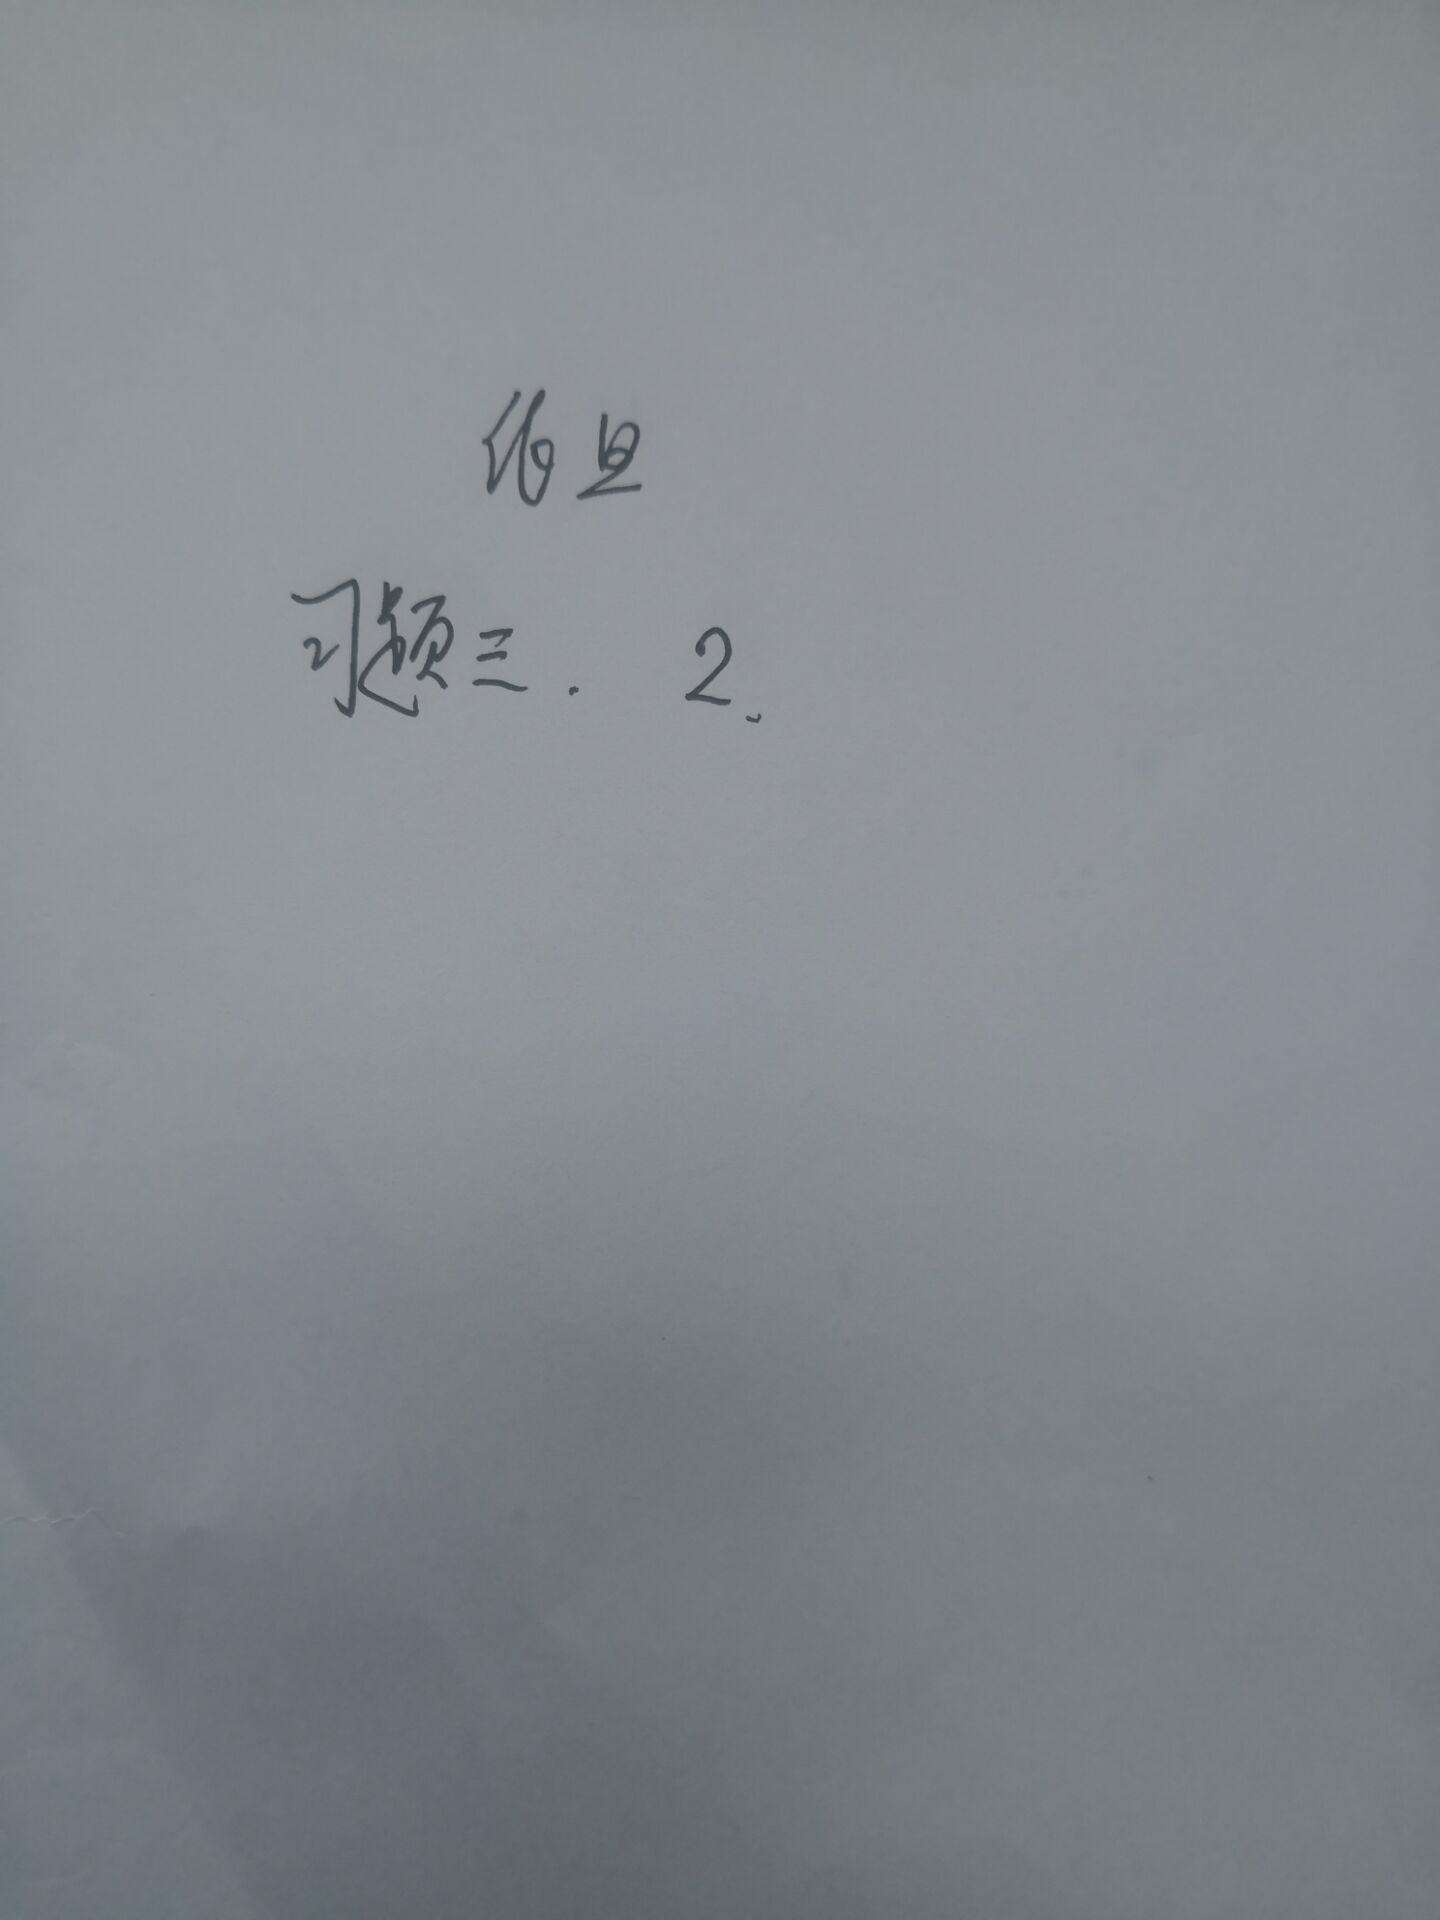 作旦
习题三. 2.